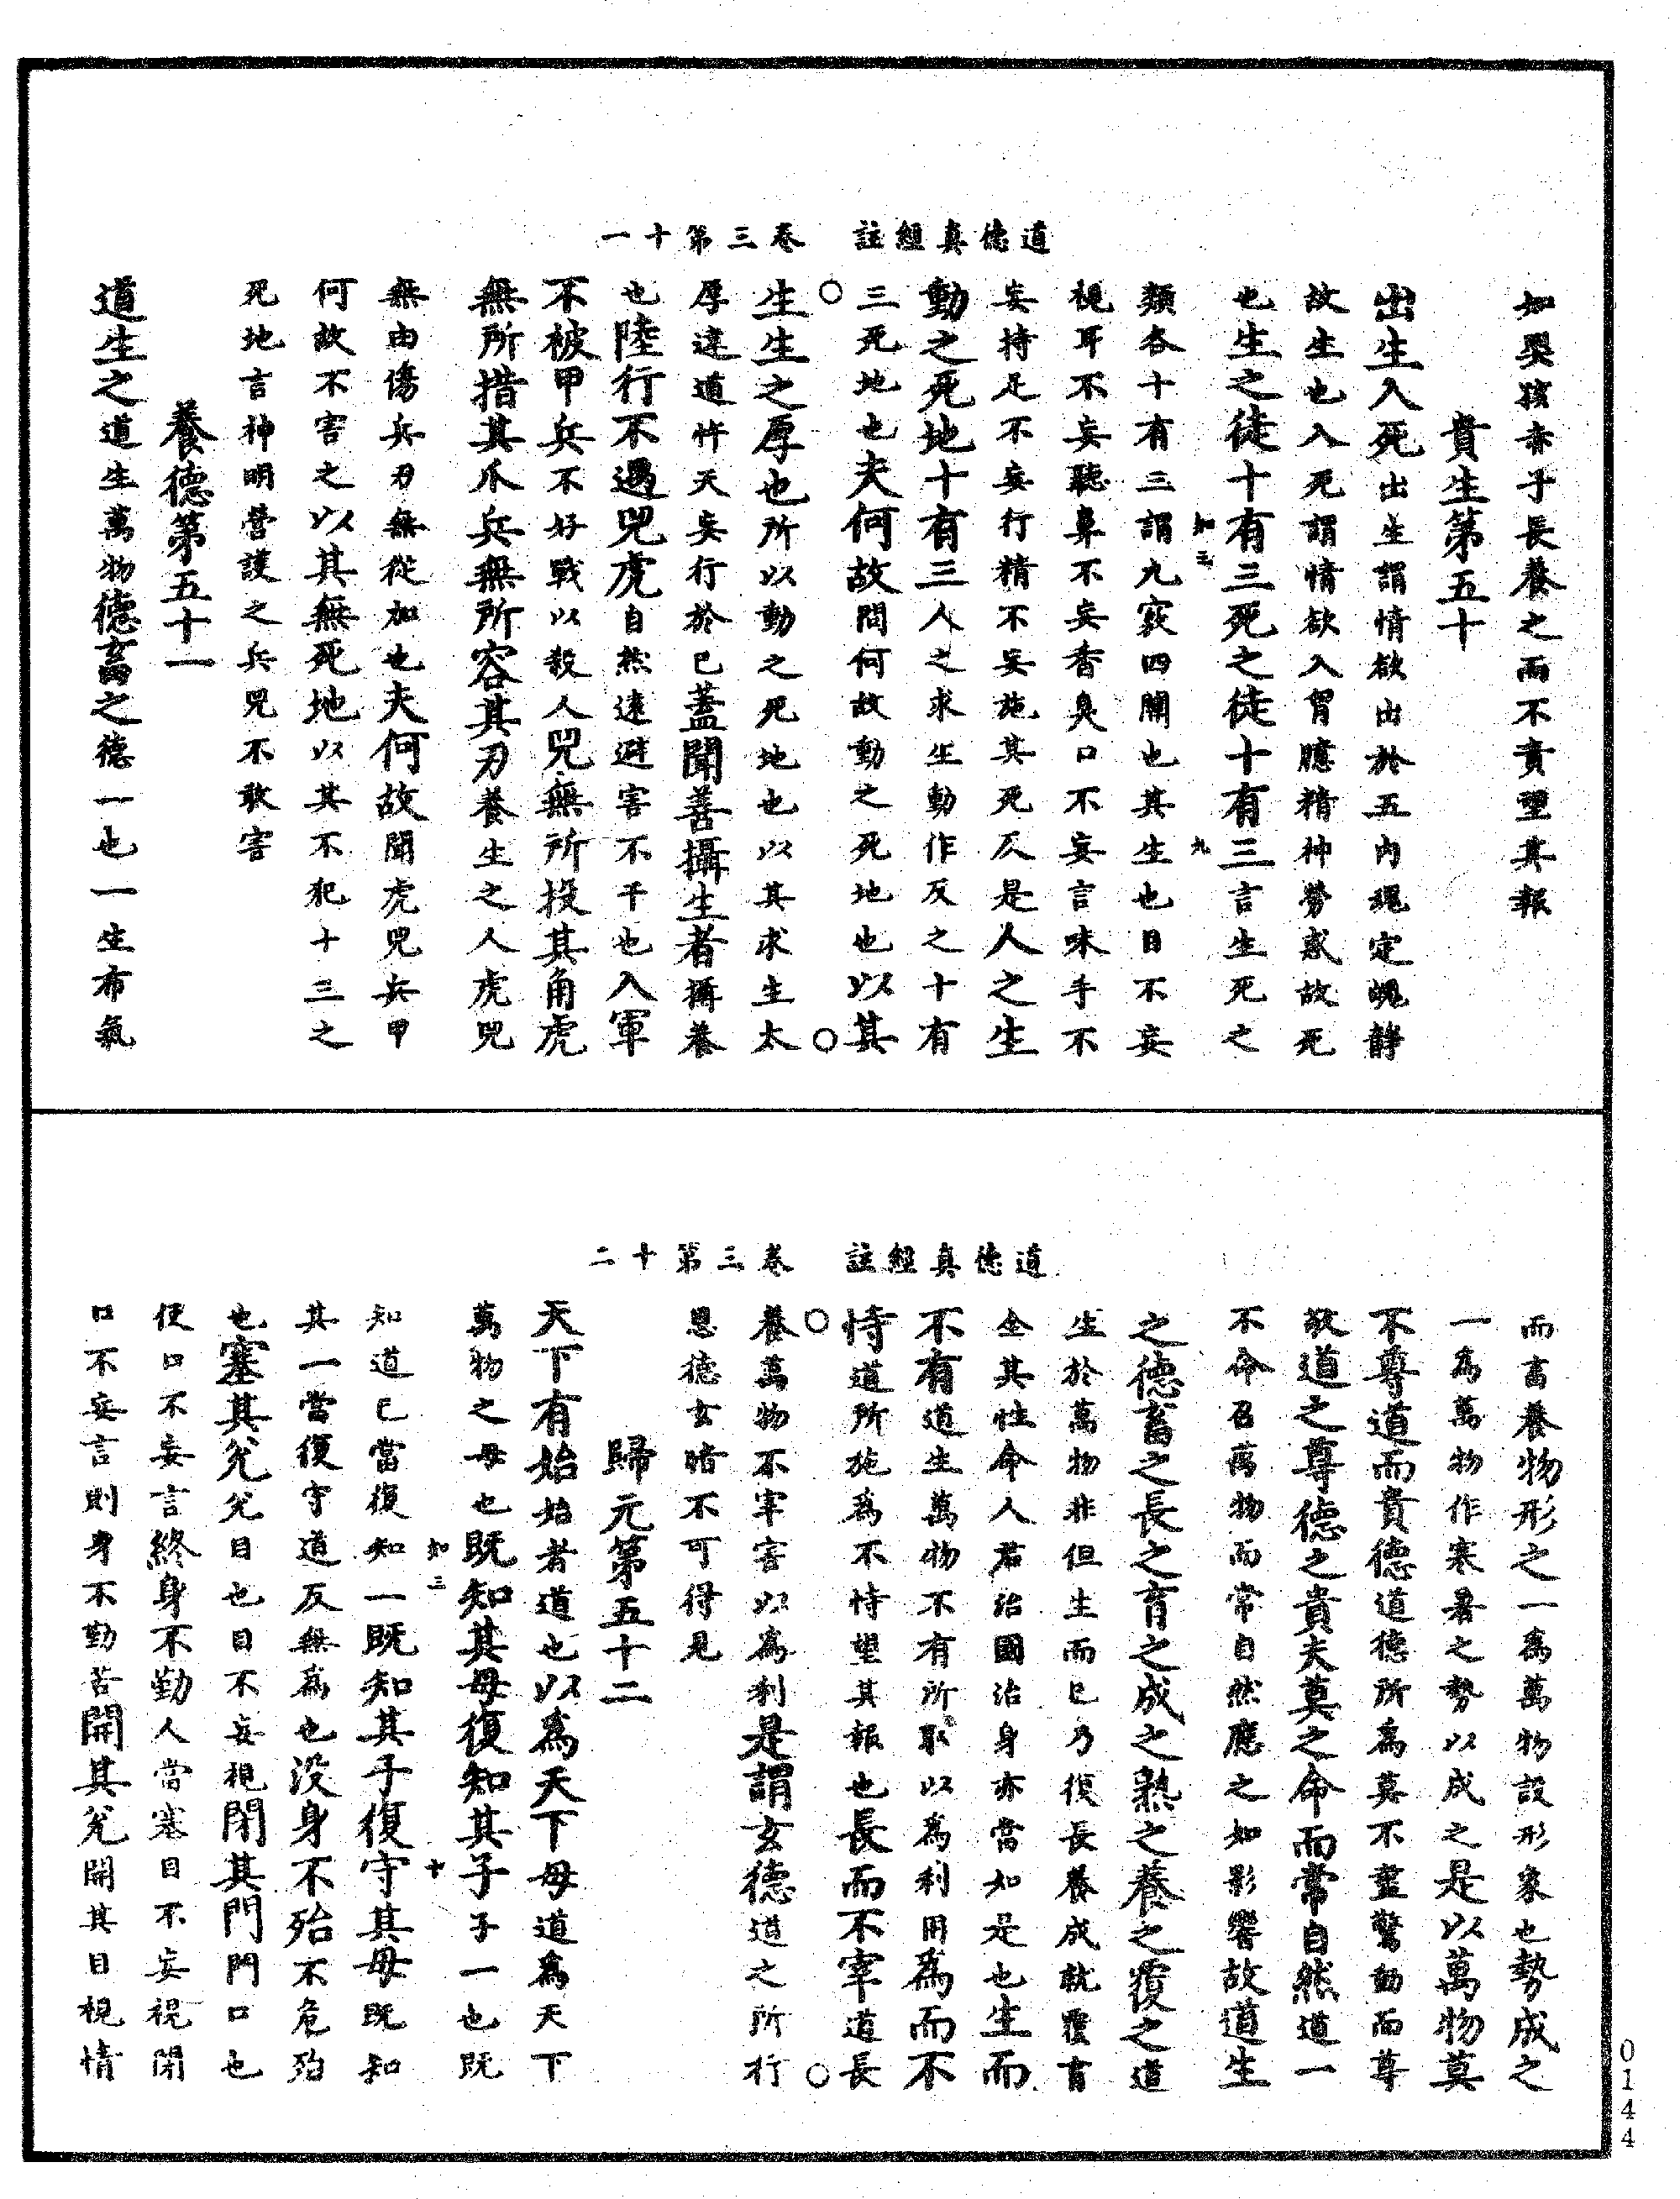 道德真經註　卷三第十一
如嬰孩赤子長養之而不責望其報
貴生第五十
出生入死出生謂情欲出於五内魂定魄靜
故生也入死謂情欲入胷臆精神勞惑故死
也生之徒十有三死之徒十有三言生死之
知三　九
類各十有三謂九竅四關也其生也目不妄
視耳不妄聽鼻不妄香臭口不妄言味手不
妄持足不妄行精不妄施其死反是人之生
動之死地十有三人之求生動作反之十有
三死地也夫何故問何故動之死地也以其
生生之厚也所以動之死地也以其求生太
厚違道忤天妄行於已蓋聞善攝生者攝養
也陸行不遇兕虎自然遠避害不干也入軍
不被甲兵不好戰以殺人兕無所投其角虎
無所措其爪兵無所容其刃養生之人虎兕
無由傷兵刃無從加也夫何故問虎兕兵甲
何故不害之以其無死地以其不犯十三之
死地言神明營護之兵兕不敢害
養德第五十一
道生之道生萬物德畜之德一也一生布氣
道德真經註　卷三第十二
而畜養物形之一爲萬物設形象也勢成之
一爲萬物作寒暑之勢以成之是以萬物莫
不尊道而貴德道德所爲莫不盡驚動而尊
敬道之尊德之貴夫莫之命而常自然道一
不命召萬物而常自然應之如影響故道生
之德畜之長之育之成之熟之養之覆之道
生於萬物非但生而已乃復長養成就覆育
全其性命人君治國治身亦當如是也生而
不有道生萬物不有所取以爲利用爲而不
恃道所施爲不恃望其報也長而不宰道長
養萬物不宰害以爲利是謂玄德道之所行
恩德玄暗不可得見
歸元第五十二
天下有始始者道也以爲天下母道爲天下
萬物之母也既知其母復知其子子一也既
知三　十
知道已當復知一既知其子復守其母既知
其一當復守道反無爲也没身不殆不危殆
也塞其兊兊目也目不妄視閉其門門口也
使口不妄言終身不勤人當塞目不妄視閉
口不妄言則身不勤苦開其兊開其目視情
0144